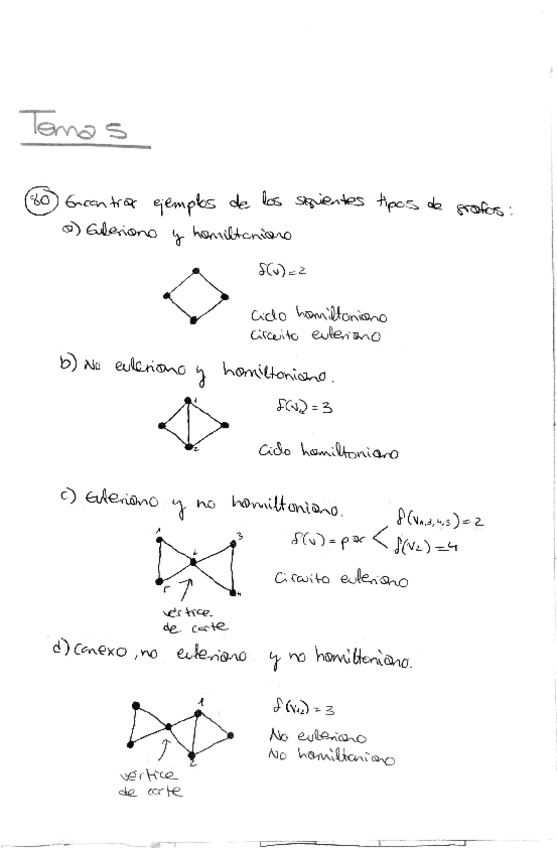 Tema 5
80 Encontrar ejemplos de los siguientes tipos de grafos:
a) Euleriano y hamiltoniano
δ(v)=2
Ciclo hamiltoniano
Circuito euleriano
b) No euleriano y hamiltoniano.
1
2
δ(v₁,₂) = 3
Ciclo hamiltoniano
c) Euleriano y no hamiltoniano.
1
2
3
4
5
δ(v) = par < δ(v₁,₃,₄,₅) = 2
δ(v₂) = 4
Circuito euleriano
vértice
de corte
d) Conexo, no euleriano y no hamiltoniano.
1
2
δ(v₁,₂) = 3
No euleriano
No hamiltoniano
vértice
de corte